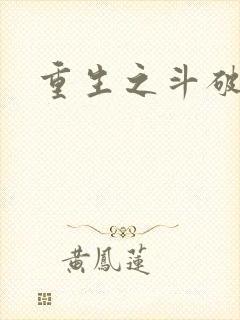 重生之斗破
黃鳳蓮